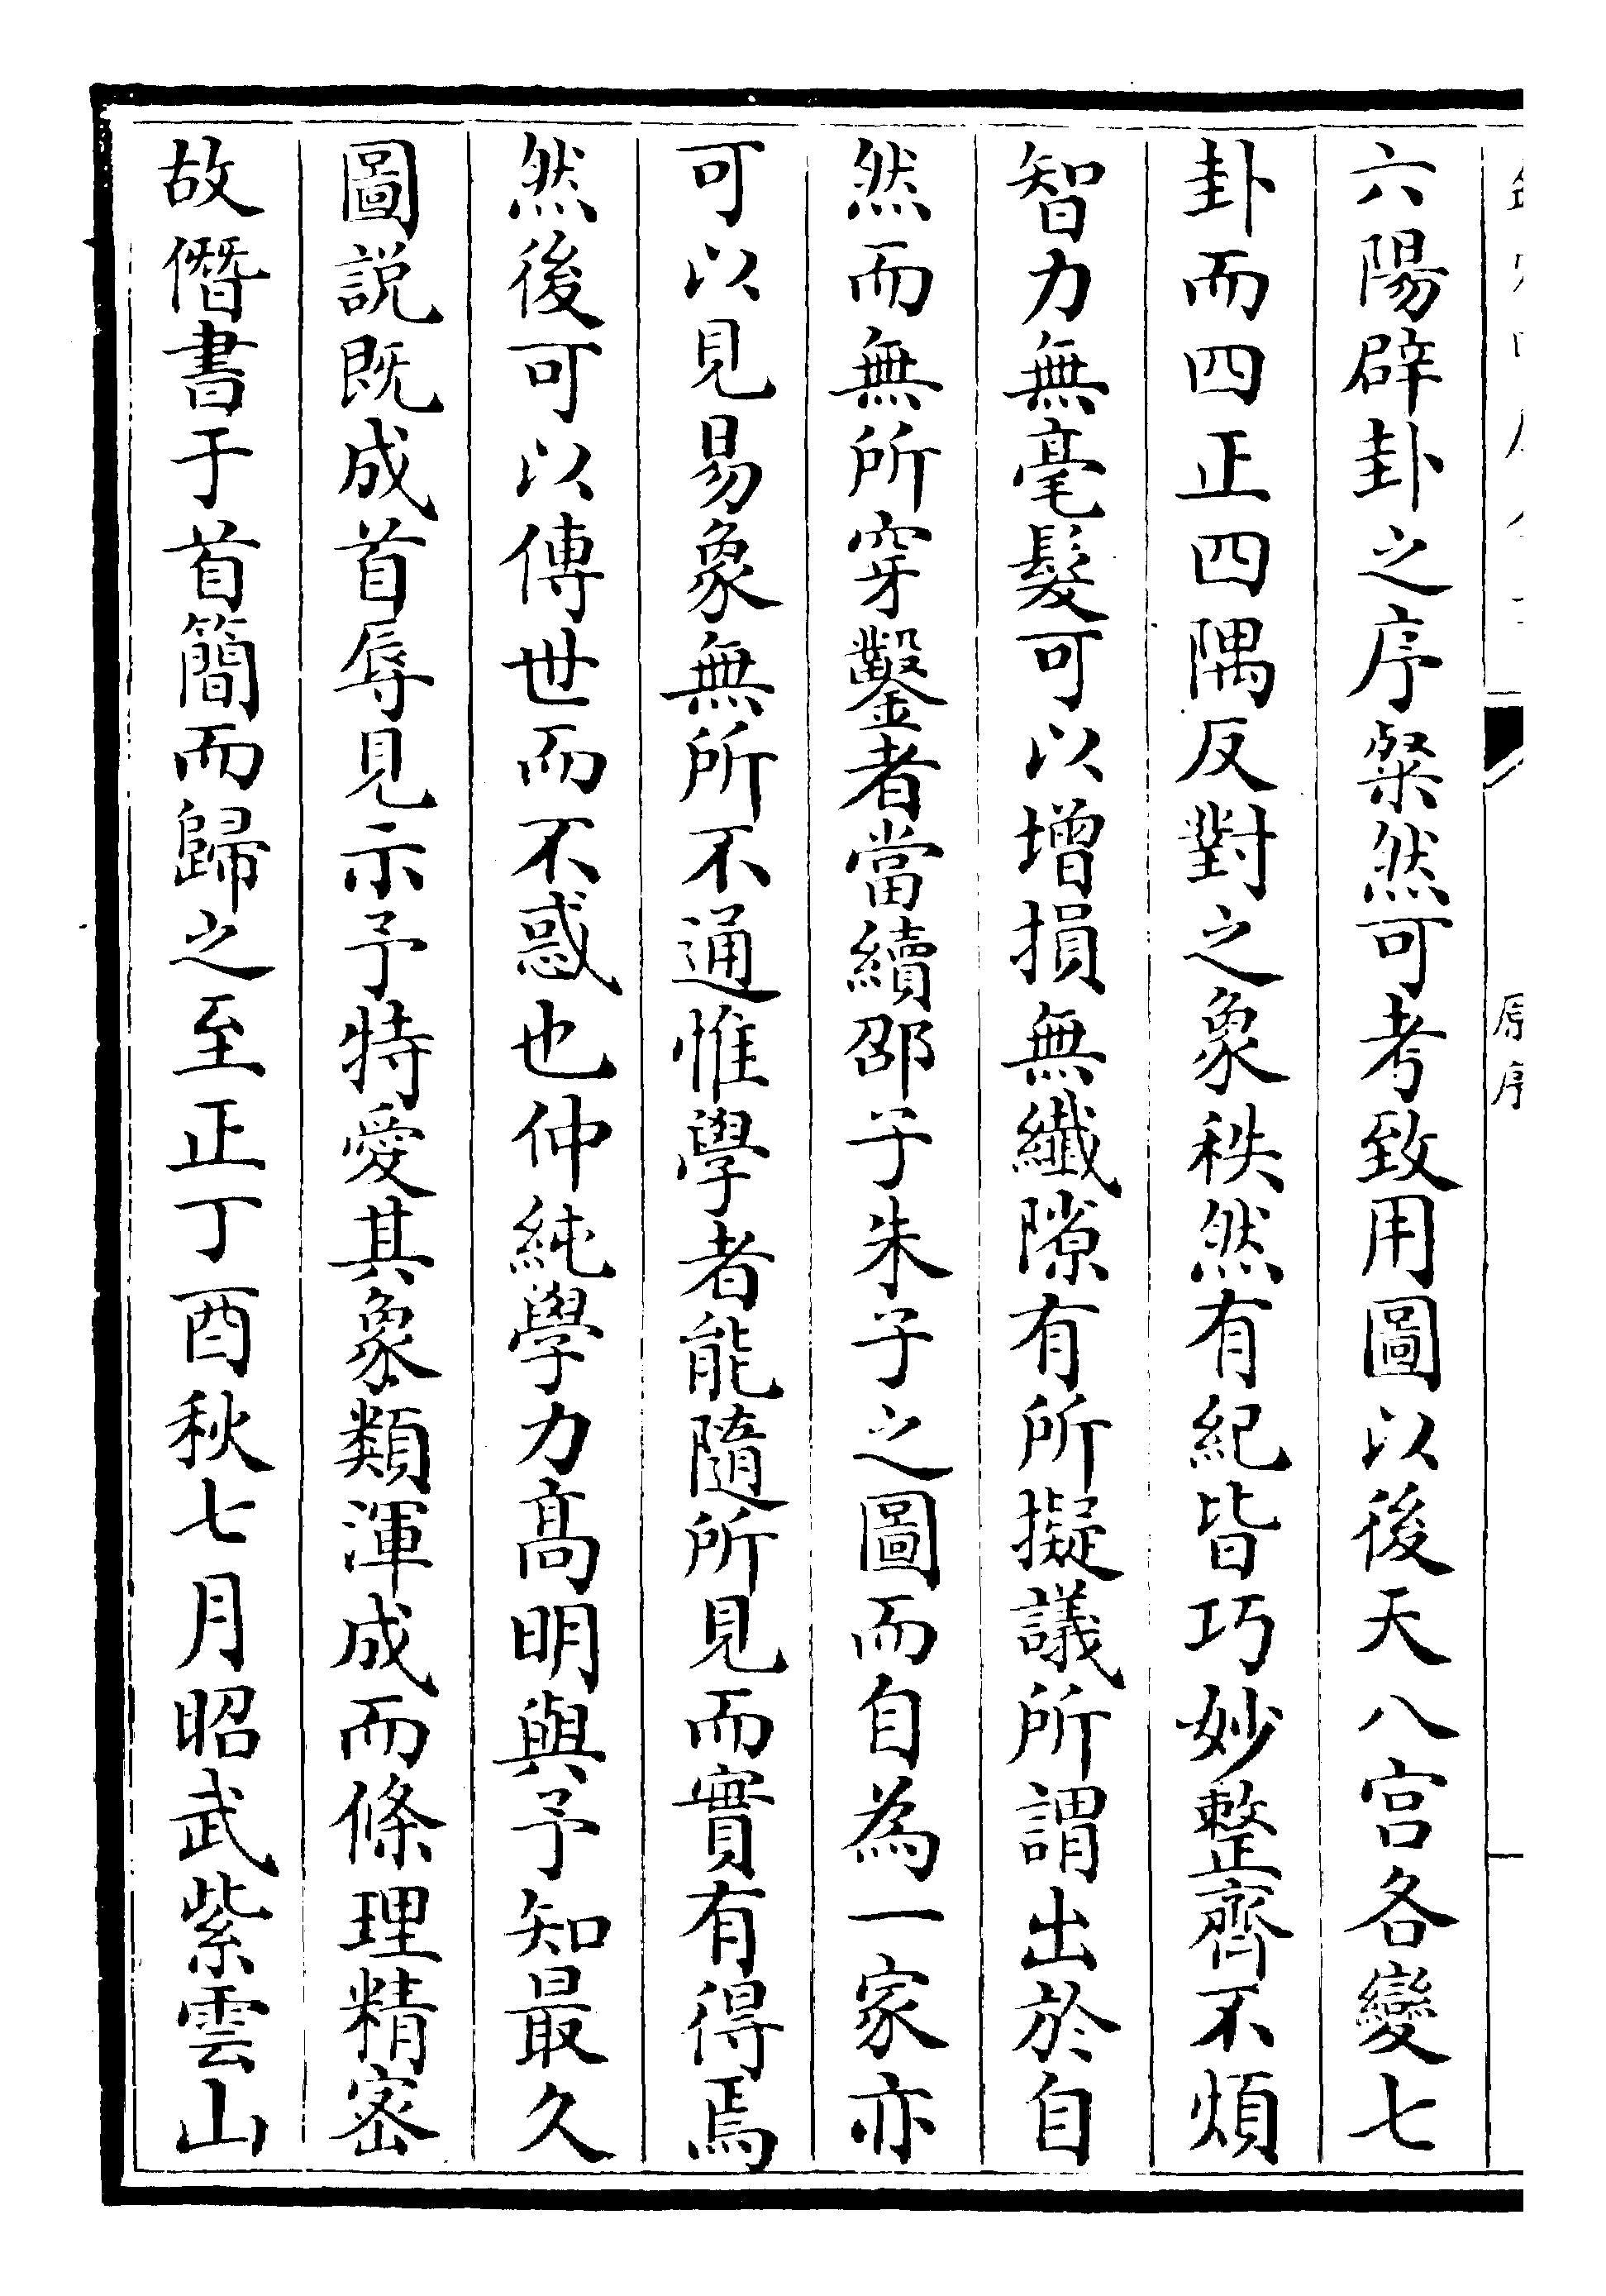 六陽辟卦之序粲然可考致用圖以後天八宫各變七
卦而四正四隅反對之象秩然有紀皆巧妙整齊不煩
智力無毫髮可以增損無纖隙有所擬議所謂出於自
然而無所穿鑿者當續邵子朱子之圖而自為一家亦
可以見易象無所不通惟學者能隨所見而實有得焉
然後可以傳世而不惑也仲純學力髙明與予知最久
圖説既成首辱見示予特愛其象類渾成而條理精宻
故僭書于首簡而歸之至正丁酉秋七月昭武紫雲山